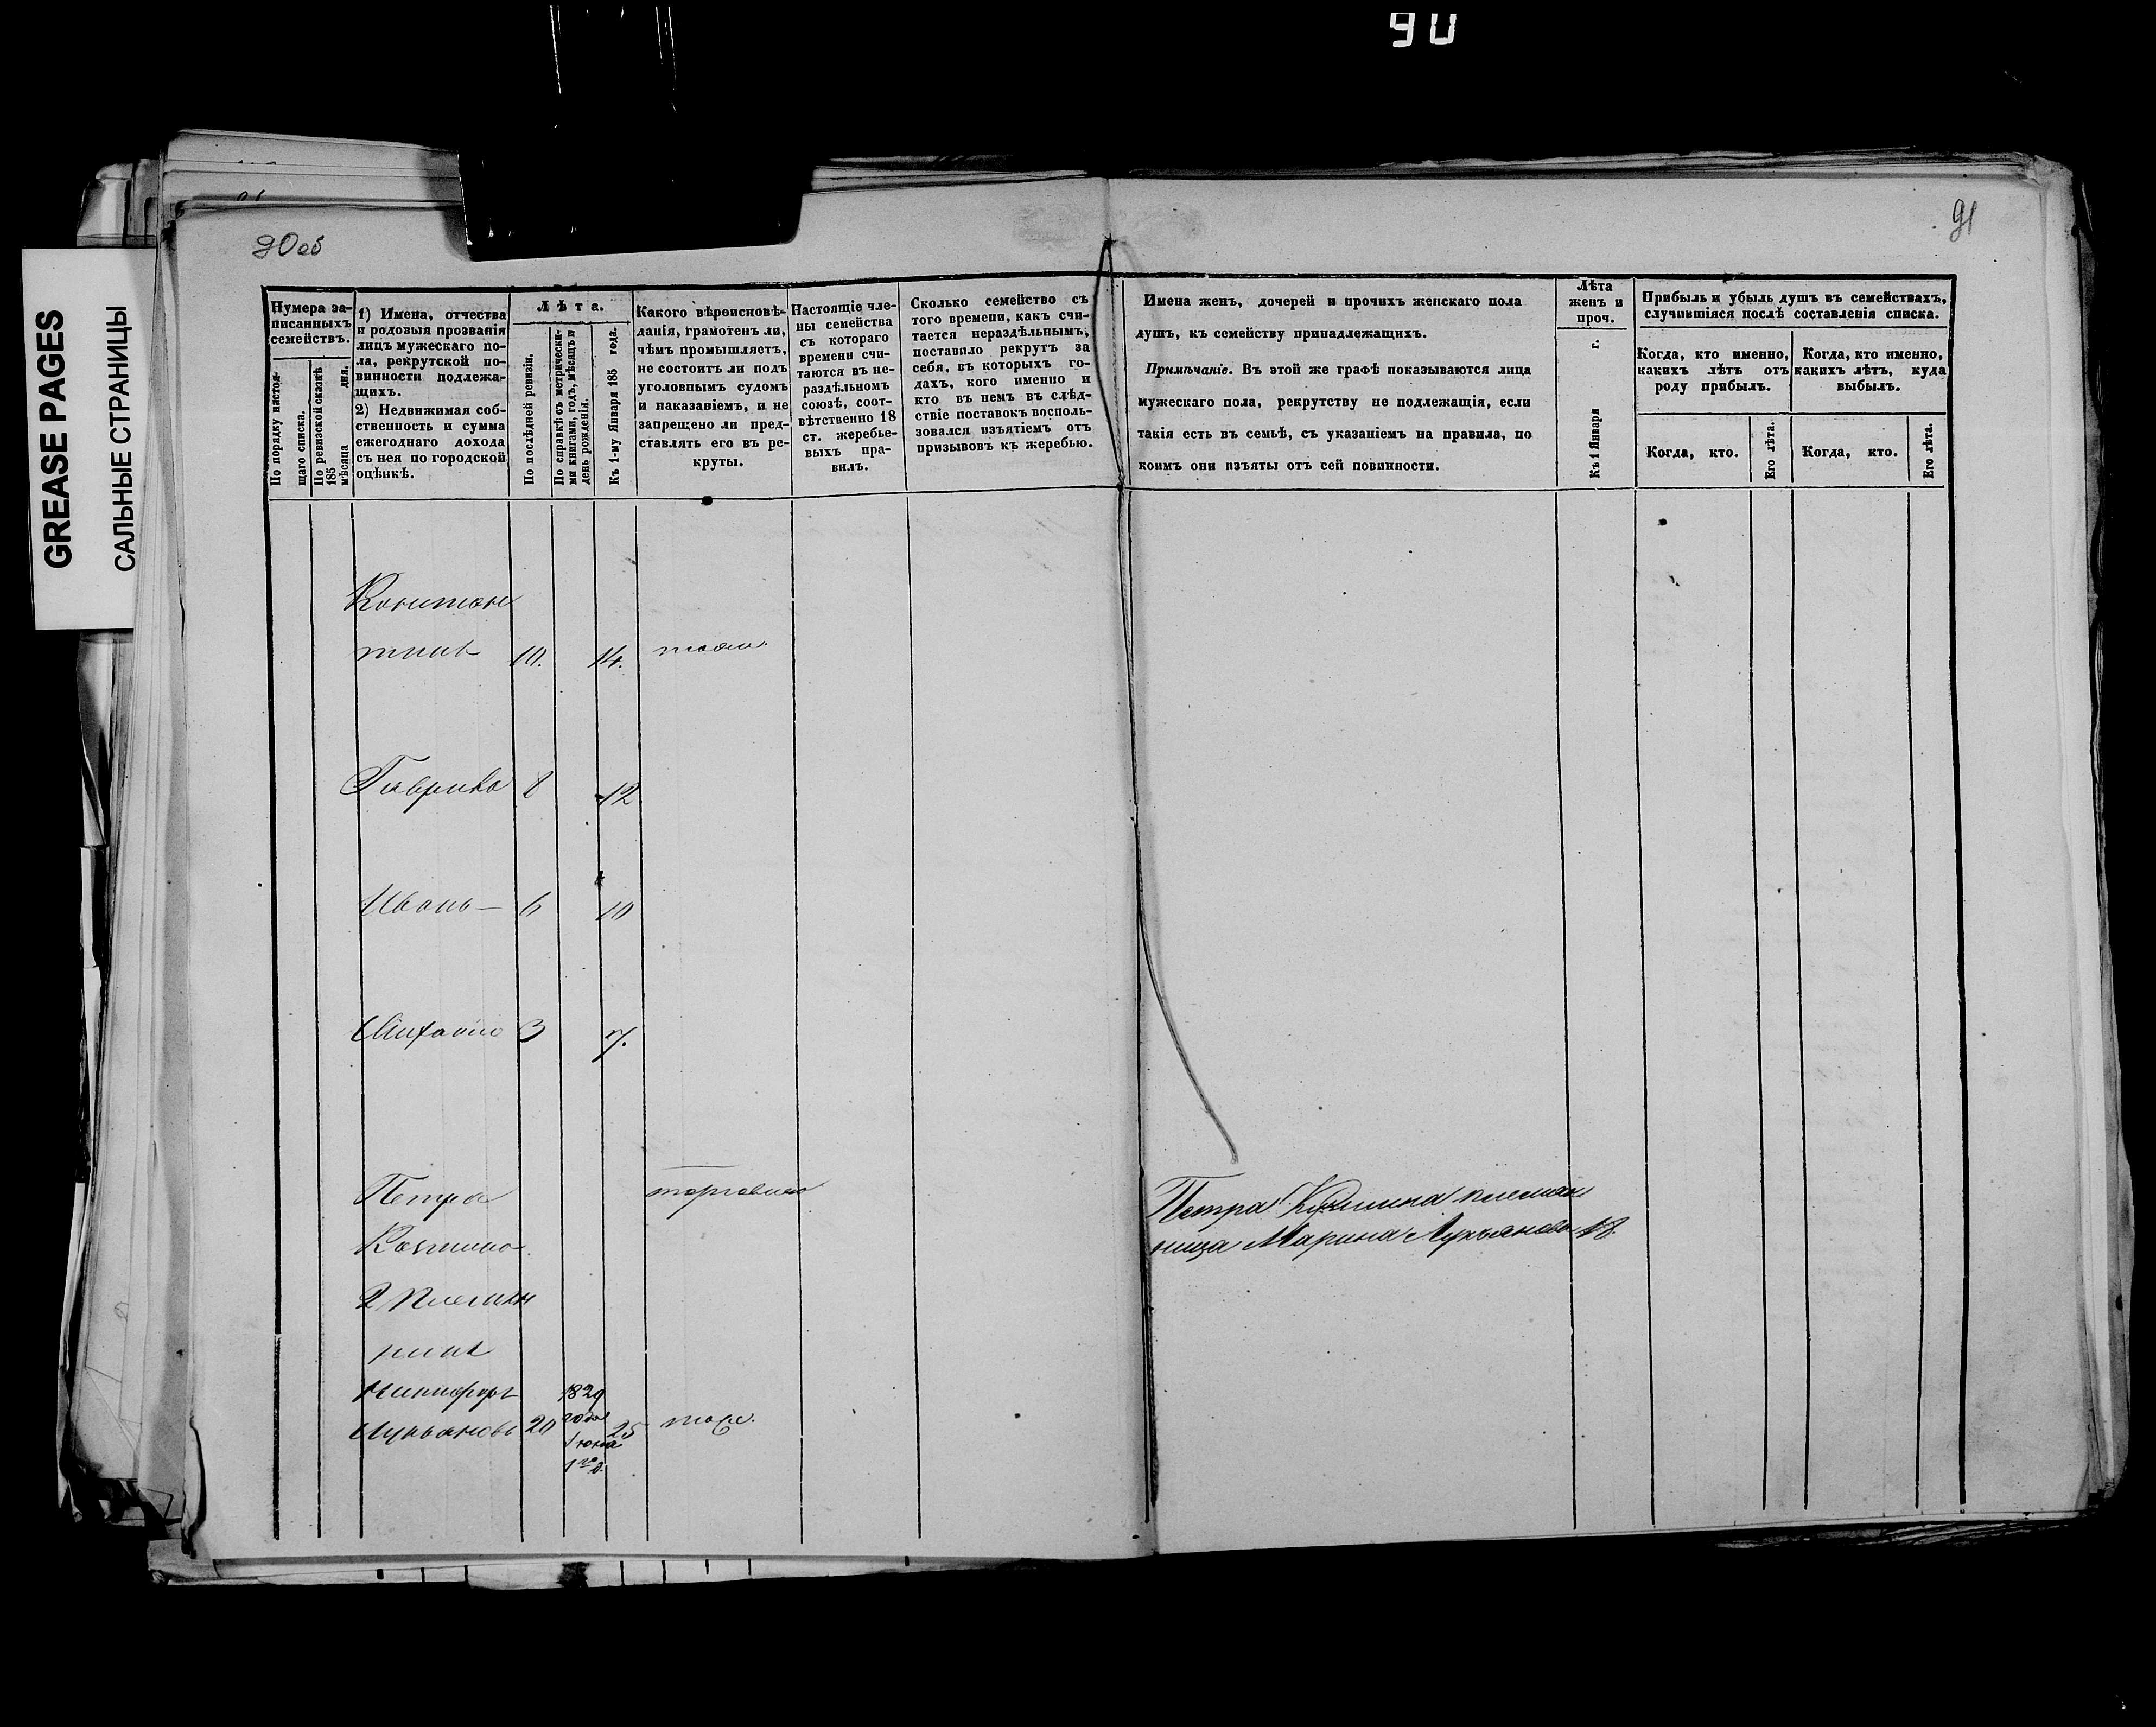 90
GREASE PAGES
САЛЬНЫЕ СТРАНИЦЫ
90об
91
Нумера за-
писанныхъ
семействъ.
По порядку настоя-
щаго списка.
По ревизской сказкѣ
185
мѣсяца дня.
1) Имена, отчества
и родовыя прозванія
лицъ мужескаго по-
ла, рекрутской по-
винности подлежа-
щихъ.
2) Недвижимая соб-
ственность и сумма
ежегоднаго дохода
съ нея по городской
оцѣнкѣ.
Лѣта.
По послѣдней ревизіи.
По справкѣ съ метрически-
ми книгами, годъ, мѣсяцъ и
день рожденія.
Къ 1-му Января 185 года.
Какого вѣроисповѣ-
данія, грамотенъ ли,
чѣмъ промышляетъ,
не состоитъ ли подъ
уголовнымъ судомъ
и наказаніемъ, и не
запрещено ли пред-
ставлять его въ ре-
круты.
Настоящіе чле-
ны семейства
съ котораго
времени счи-
таются въ не-
раздѣльномъ
союзѣ, соот-
вѣтственно 18
ст. жеребье-
выхъ пра-
вилъ.
Сколько семейство съ
того времени, какъ счи-
тается нераздѣльнымъ,
поставило рекрутъ за
себя, въ которыхъ го-
дахъ, кого именно и
кто въ немъ въ слѣд-
ствіе поставокъ восполь-
зовался изъятіемъ отъ
призывовъ къ жеребью.
Имена женъ, дочерей и прочихъ женскаго пола
душъ, къ семейству принадлежащихъ.
Примѣчаніе. Въ этой же графѣ показываются лица
мужескаго пола, рекрутству не подлежащія, если
такія есть въ семьѣ, съ указаніемъ на правила, по
коимъ они изъяты отъ сей повинности.
Лѣта
женъ и
проч.
Къ 1 Января г.
Прибыль и убыль душъ въ семействахъ,
случившіяся послѣ составленія списка.
Когда, кто именно,
какихъ лѣтъ отъ
роду прибылъ.
Когда, кто именно,
какихъ лѣтъ, куда
выбылъ.
Когда, кто.
Его лѣта.
Когда, кто.
Его лѣта.
Констан
тинъ 10. 14.
Гаврило 8 12
Иванъ — 6 10
Михайло 3 7.
Петра
Козмина
2 племян
никъ
Никифоръ 1829
Лукьяновъ 20 года 25
Іюня
1го д.
Петра Кузмина племян
ница Марина Лукьянова 18.